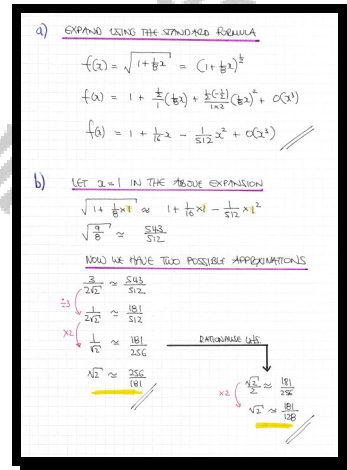 a) EXPAND USING THE STANDARD FORMULA
f(x) = √(1 + 1/8 x) = (1 + 1/8 x)^(1/2)
f(x) = 1 + (1/2)/1 (1/8 x) + (1/2(-1/2))/(1×2) (1/8 x)² + O(x³)
f(x) = 1 + 1/16 x - 1/512 x² + O(x³)
b) LET x=1 IN THE ABOVE EXPANSION
√(1 + 1/8 × 1) ≈ 1 + 1/16 × 1 - 1/512 × 1²
√(9/8) ≈ 543/512
NOW WE HAVE TWO POSSIBLE APPROXIMATIONS
3/(2√2) ≈ 543/512
÷3
1/(2√2) ≈ 181/512
×2
1/√2 ≈ 181/256
√2 ≈ 256/181
RATIONALISE LHS
√2/2 ≈ 181/256
×2
√2 ≈ 181/128